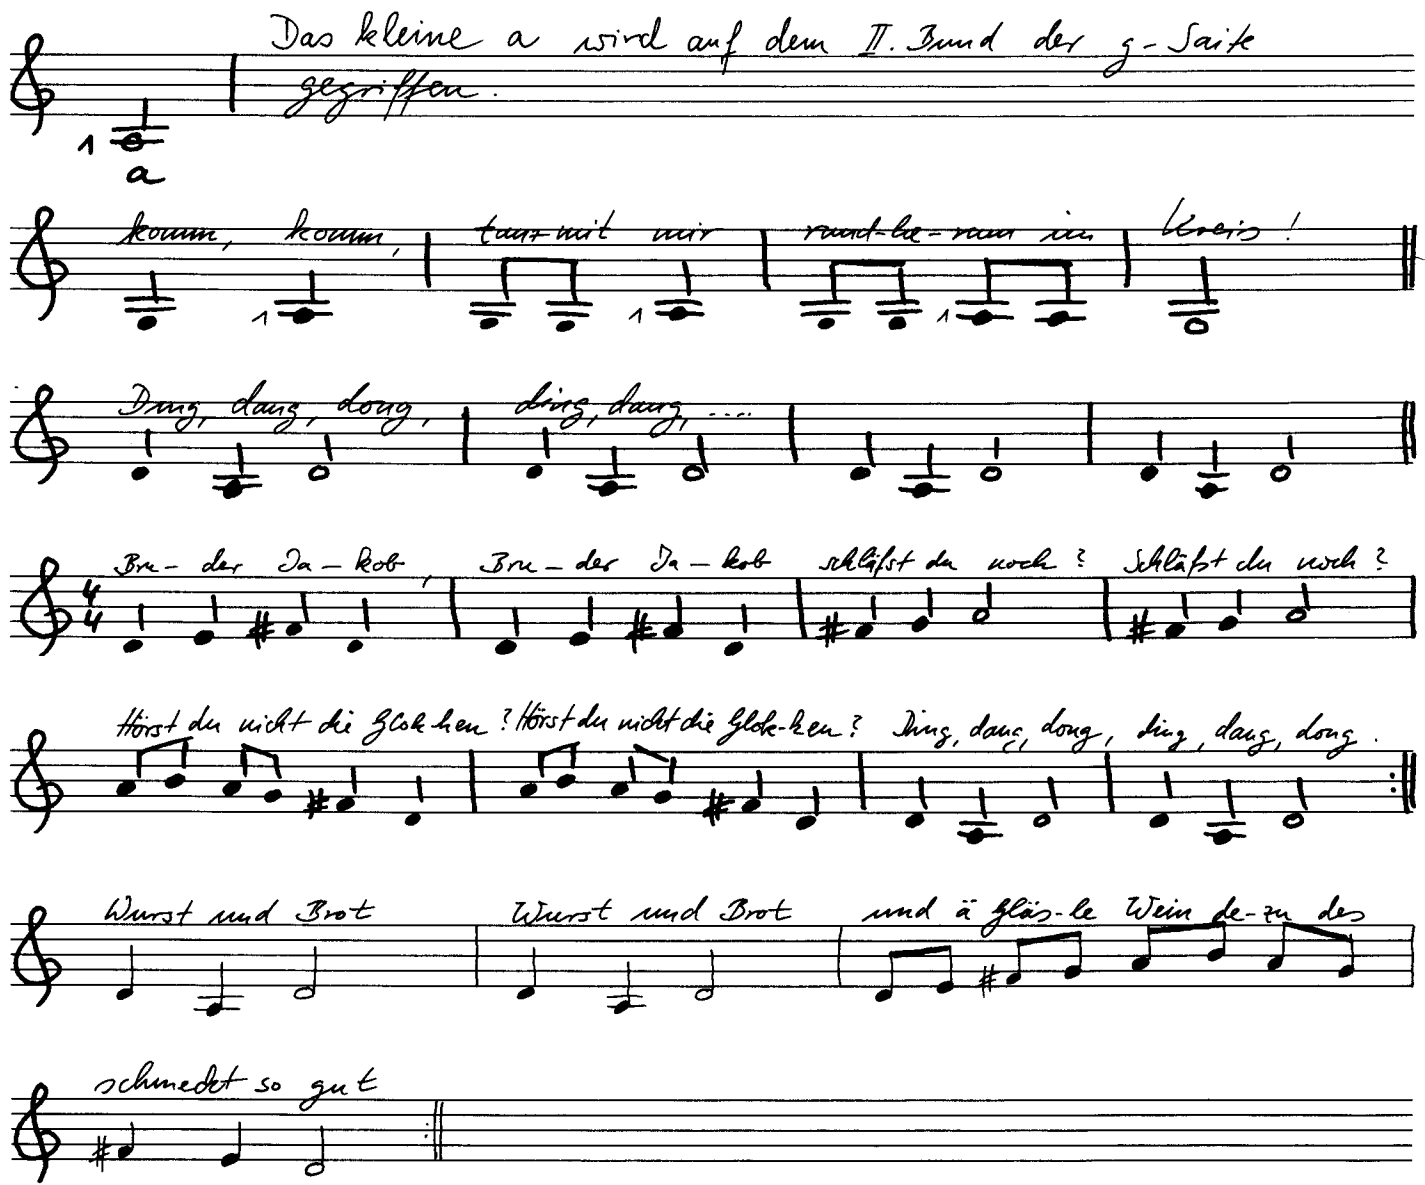 Das kleine a wird auf dem II. Bund der g-Saite
gegriffen.
1
a
komm, komm, tanz mit mir rund-he-rum im Kreis!
1 1 1
Ding, dang, dong, ding, dang, ....
Bru- der Ja- kob, Bru- der Ja- kob schläfst du noch? Schläfst du noch?
4
4
Hörst du nicht die Glok-ken? Hörst du nicht die Glok-ken? Ding, dang, dong, ding, dang, dong.
Wurst und Brot Wurst und Brot und ä Gläs-le Wein de-zu des
schmeckt so gut